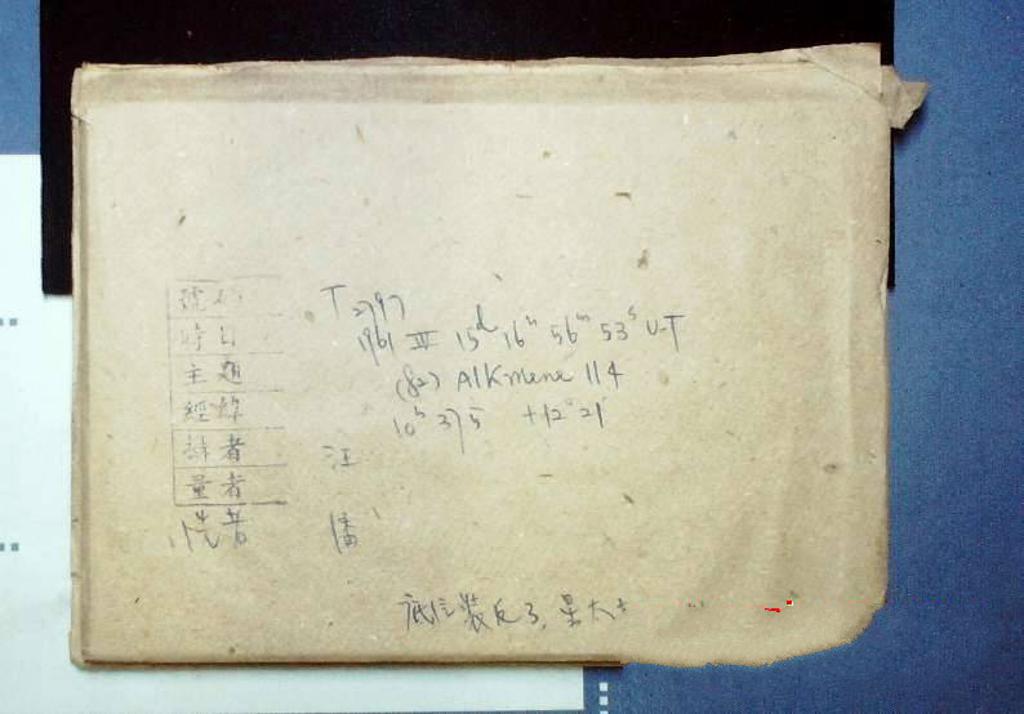 號码 T2797
時日 1961 III 15d 16h 56m 53s U-T
主題 (82) Alkmene 114
經緯 10h 37.5 +12° 21'
攝者 汪
量者
洗者 潘
底片装反了,星太